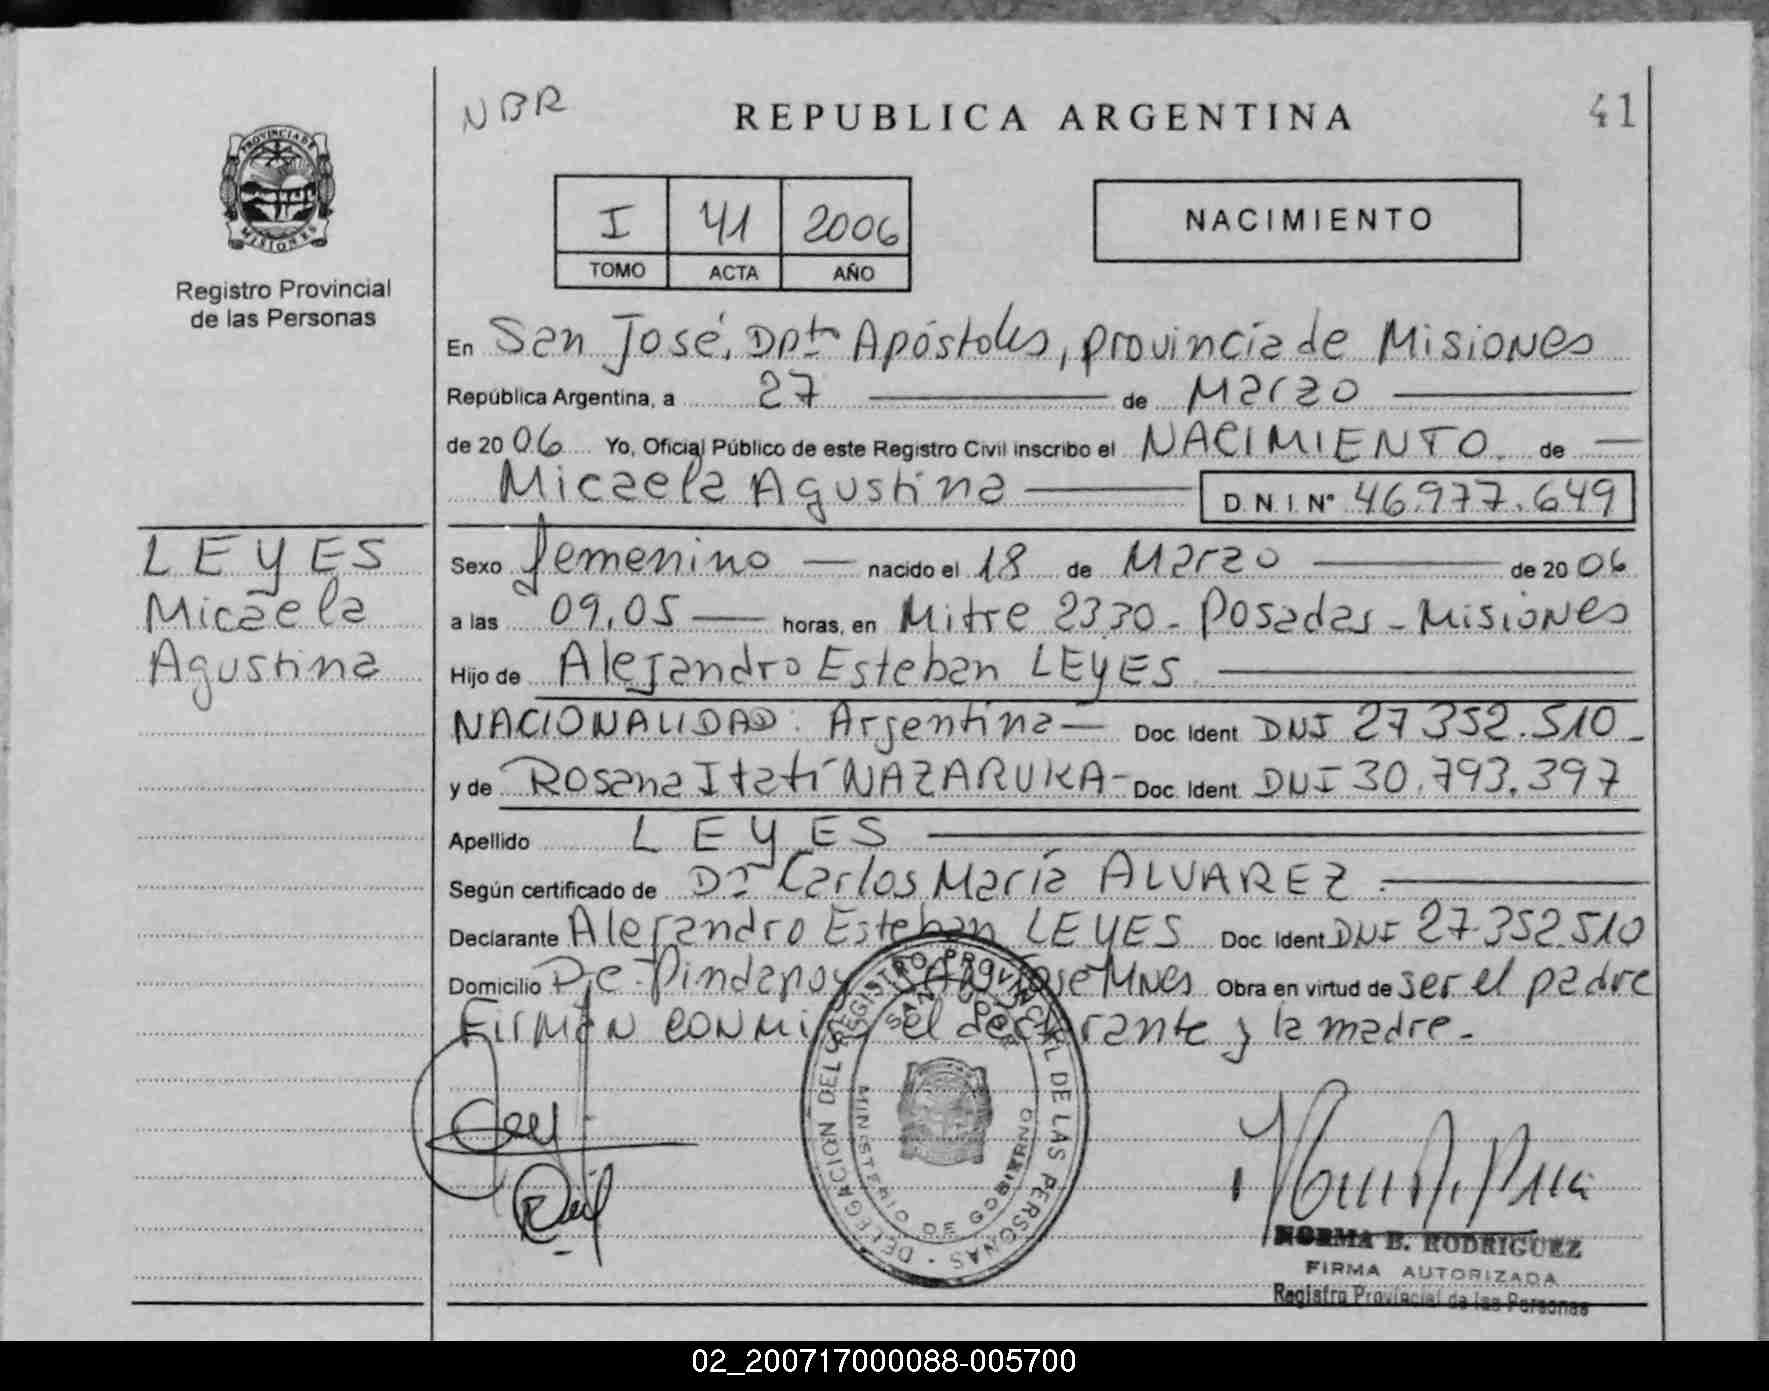 NBR
REPUBLICA ARGENTINA
41
PROVINCIA DE
MISIONES
Registro Provincial
de las Personas
I 41 2006
TOMO ACTA AÑO
NACIMIENTO
En San José, Dpto Apóstoles, provincia de Misiones
República Argentina, a 27 de Marzo
de 2006 Yo, Oficial Público de este Registro Civil inscribo el NACIMIENTO de
Micaela Agustina D.N.I. Nº 46.977.649
LEYES
Micaela
Agustina
Sexo femenino nacido el 18 de Marzo de 2006
a las 09,05 horas, en Mitre 2330 - Posadas - Misiones
Hijo de Alejandro Esteban LEYES
NACIONALIDAD: Argentina Doc. Ident. DNI 27.352.510
y de Rosana Itatí NAZARUKA - Doc. Ident. DNI 30.793.397
Apellido LEYES
Según certificado de Dr Carlos María ALVAREZ
Declarante Alejandro Esteban LEYES Doc. Ident DNI 27.352.510
Domicilio Pje. Pindapoy San José Mnes Obra en virtud de ser el padre
Firman conmigo el declarante y la madre.-
DELEGACION DEL REGISTRO PROVINCIAL DE LAS PERSONAS
SAN JOSE
MINISTERIO DE GOBIERNO
NORMA B. RODRIGUEZ
FIRMA AUTORIZADA
Registro Provincial de las Personas
02_200717000088-005700